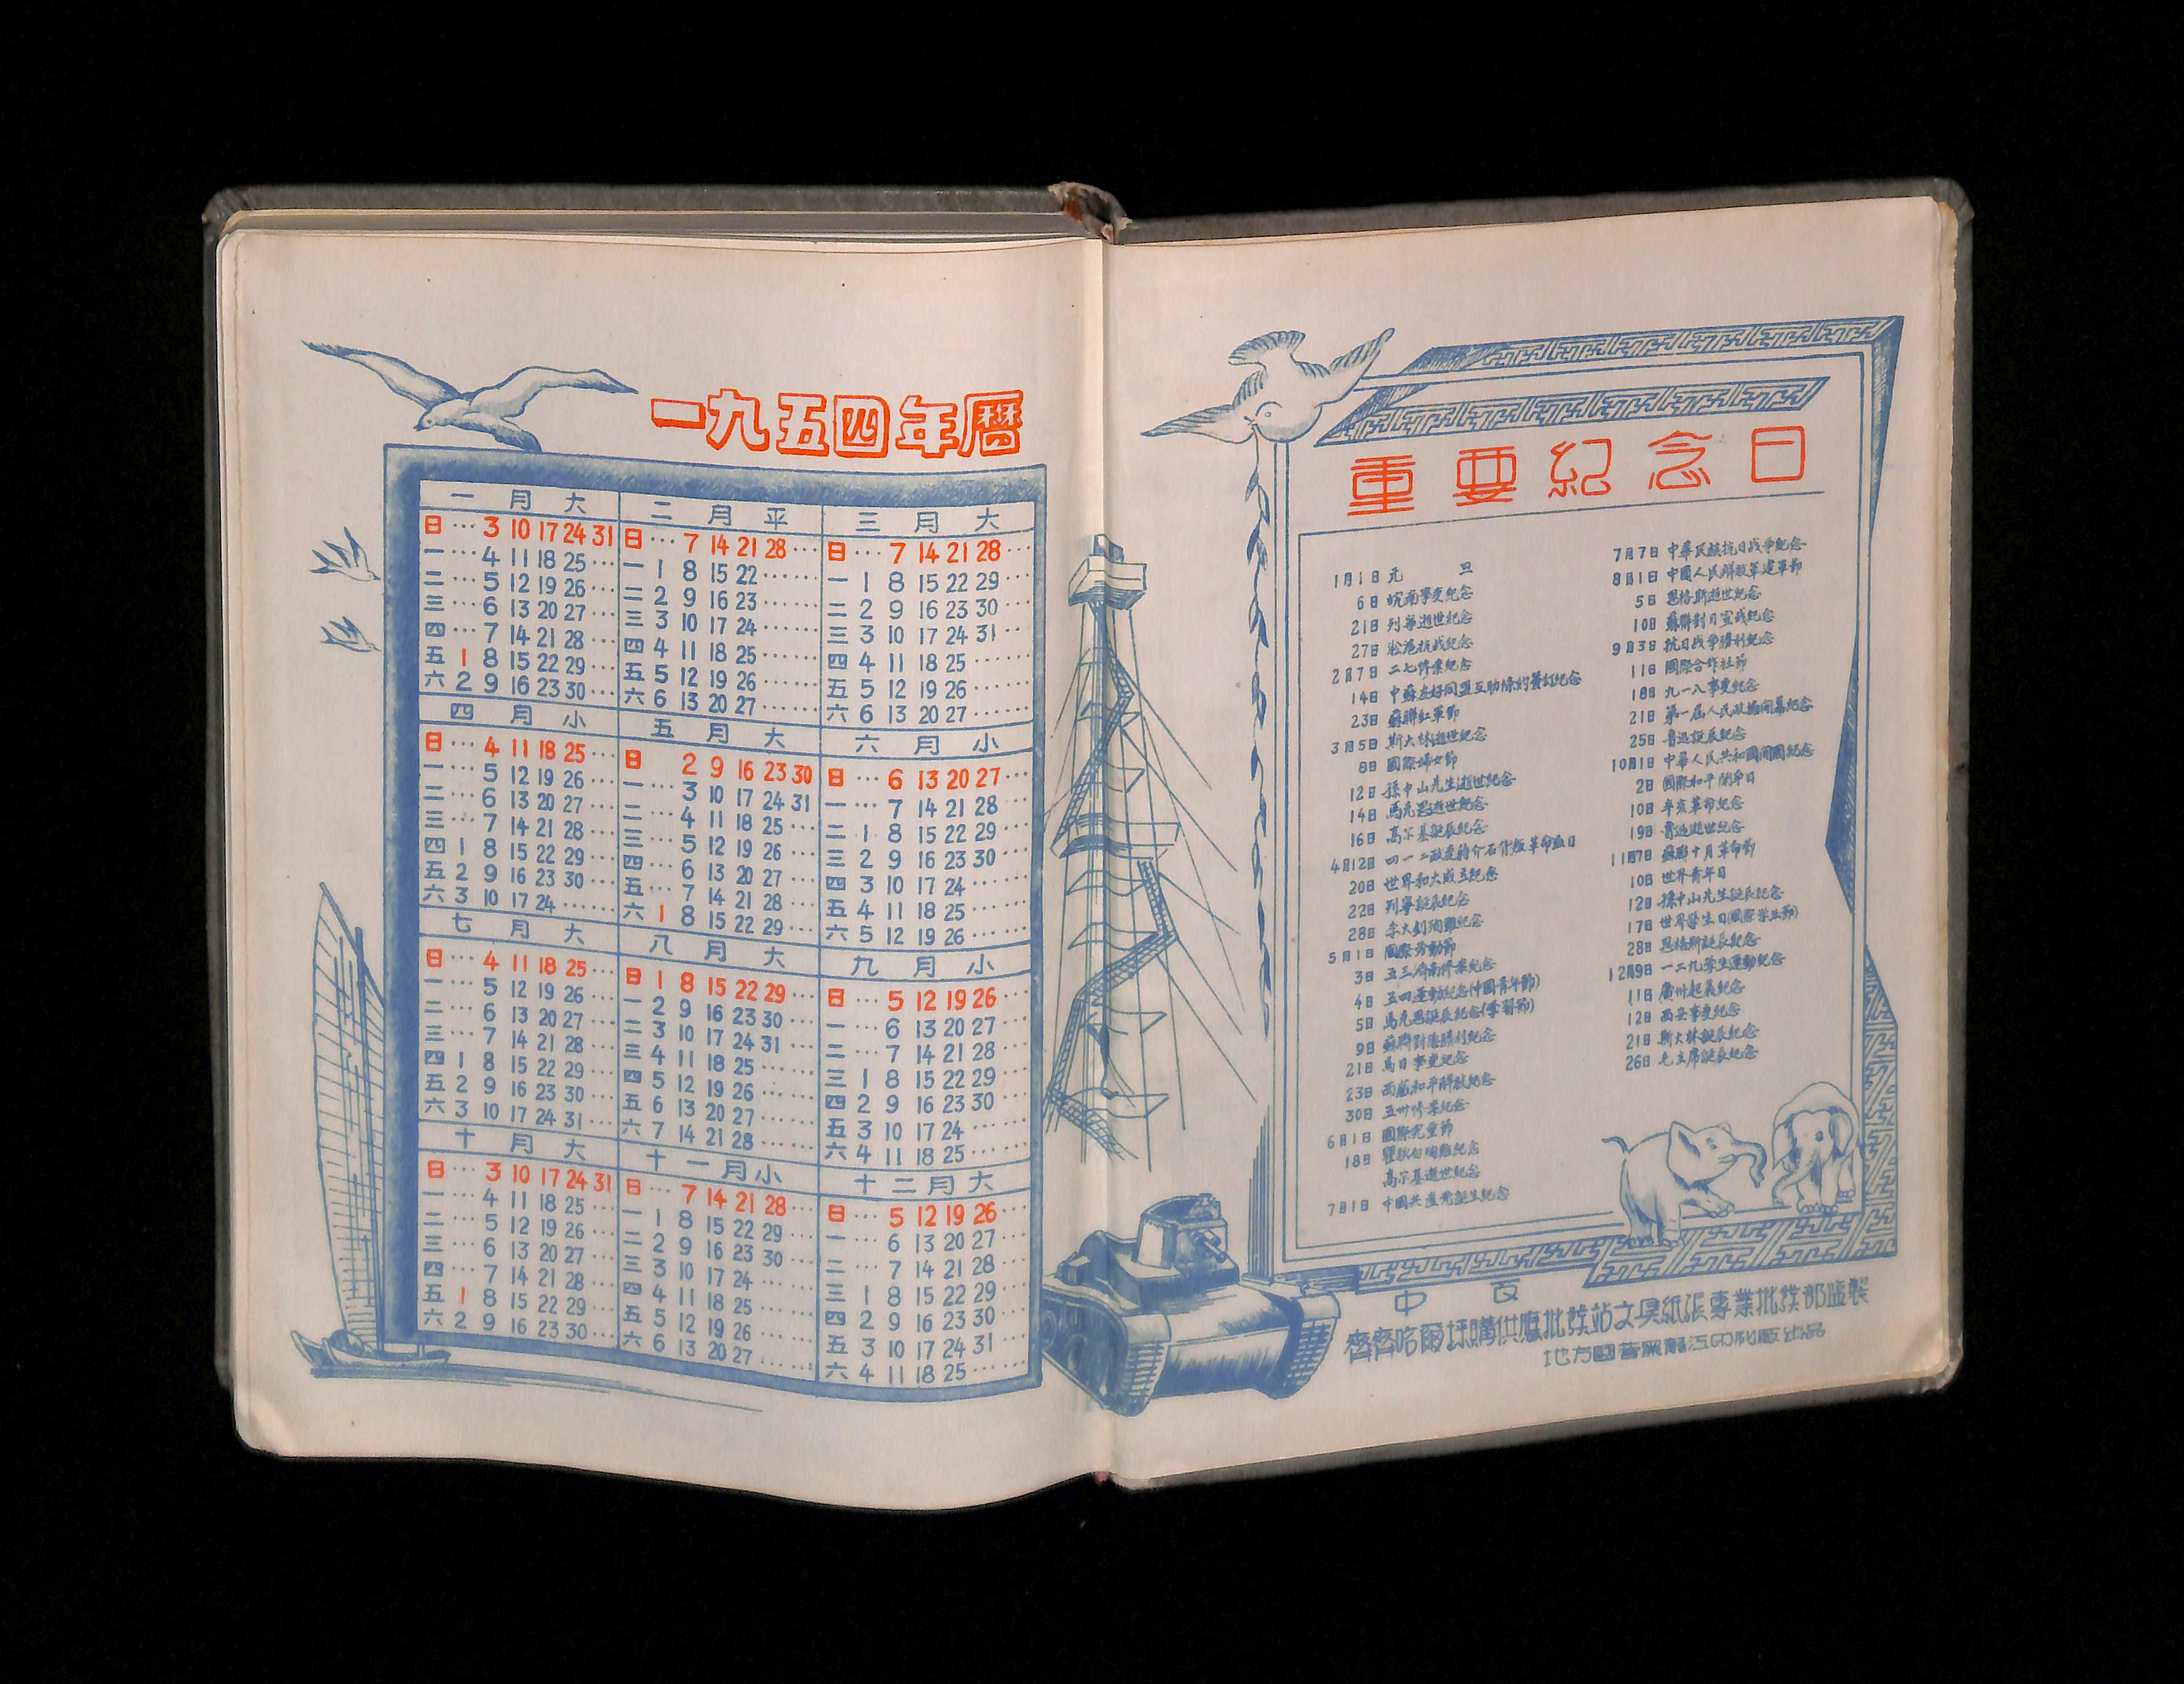 一九五四年曆
一月大
日…3 10 17 24 31
一…4 11 18 25…
二…5 12 19 26…
三…6 13 20 27…
四…7 14 21 28…
五 1 8 15 22 29…
六 2 9 16 23 30…
二月平
日…7 14 21 28…
一 1 8 15 22……
二 2 9 16 23……
三 3 10 17 24……
四 4 11 18 25……
五 5 12 19 26……
六 6 13 20 27……
三月大
日…7 14 21 28…
一 1 8 15 22 29…
二 2 9 16 23 30…
三 3 10 17 24 31…
四 4 11 18 25……
五 5 12 19 26……
六 6 13 20 27……
四月小
日…4 11 18 25…
一…5 12 19 26…
二…6 13 20 27…
三…7 14 21 28…
四 1 8 15 22 29…
五 2 9 16 23 30…
六 3 10 17 24……
五月大
日 2 9 16 23 30
一…3 10 17 24 31
二…4 11 18 25…
三…5 12 19 26…
四…6 13 20 27…
五…7 14 21 28…
六 1 8 15 22 29…
六月小
日…6 13 20 27…
一…7 14 21 28…
二 1 8 15 22 29…
三 2 9 16 23 30…
四 3 10 17 24……
五 4 11 18 25……
六 5 12 19 26……
七月大
日…4 11 18 25…
一…5 12 19 26…
二…6 13 20 27…
三…7 14 21 28…
四 1 8 15 22 29…
五 2 9 16 23 30…
六 3 10 17 24 31…
八月大
日 1 8 15 22 29…
一 2 9 16 23 30…
二 3 10 17 24 31…
三 4 11 18 25……
四 5 12 19 26……
五 6 13 20 27……
六 7 14 21 28……
九月小
日…5 12 19 26…
一…6 13 20 27…
二…7 14 21 28…
三 1 8 15 22 29…
四 2 9 16 23 30…
五 3 10 17 24……
六 4 11 18 25……
十月大
日…3 10 17 24 31
一…4 11 18 25…
二…5 12 19 26…
三…6 13 20 27…
四…7 14 21 28…
五 1 8 15 22 29…
六 2 9 16 23 30…
十一月小
日…7 14 21 28…
一 1 8 15 22 29…
二 2 9 16 23 30…
三 3 10 17 24……
四 4 11 18 25……
五 5 12 19 26……
六 6 13 20 27……
十二月大
日…5 12 19 26…
一…6 13 20 27…
二…7 14 21 28…
三 1 8 15 22 29…
四 2 9 16 23 30…
五 3 10 17 24 31…
六 4 11 18 25……
重要紀念日
1月1日 元旦
6日 皖南事变紀念
21日 列寧逝世紀念
27日 淞滬抗战紀念
2月7日 二七惨案紀念
14日 中蘇友好同盟互助條約簽訂紀念
23日 蘇聯紅軍節
3月5日 斯大林逝世紀念
8日 國際婦女節
12日 孫中山先生逝世紀念
14日 馬克思逝世紀念
16日 高尔基誕辰紀念
4月12日 四一二政变蔣介石背叛革命血日
20日 世界和大成立紀念
22日 列寧誕辰紀念
28日 李大釗殉難紀念
5月1日 國際劳動節
3日 五三濟南惨案紀念
4日 五四運動紀念(中國青年節)
5日 馬克思誕辰紀念(學習節)
9日 蘇聯對德勝利紀念
21日 馬日事变紀念
23日 西藏和平解放紀念
30日 五卅惨案紀念
6月1日 國際児童節
18日 瞿秋白殉難紀念
高尔基逝世紀念
7月1日 中國共產党誕生紀念
7月7日 中華民族抗日战争紀念
8月1日 中國人民解放軍建軍節
5日 恩格斯逝世紀念
10日 蘇聯對日宣战紀念
9月3日 抗日战争勝利紀念
11日 國際合作社節
18日 九一八事变紀念
21日 第一屆人民政協開幕紀念
25日 魯迅誕辰紀念
10月1日 中華人民共和國開國紀念
2日 國際和平鬥爭日
10日 辛亥革命紀念
19日 魯迅逝世紀念
11月7日 蘇聯十月革命節
10日 世界青年日
12日 孫中山先生誕辰紀念
17日 世界學生日(國際学生節)
28日 恩格斯誕辰紀念
12月9日 一二九學生運動紀念
11日 廣州起義紀念
12日 西安事变紀念
21日 斯大林誕辰紀念
26日 毛主席誕辰紀念
中百
齊齊哈爾採購供應批發站文具紙張專業批發部監製
地方國營黑龍江印刷廠出品